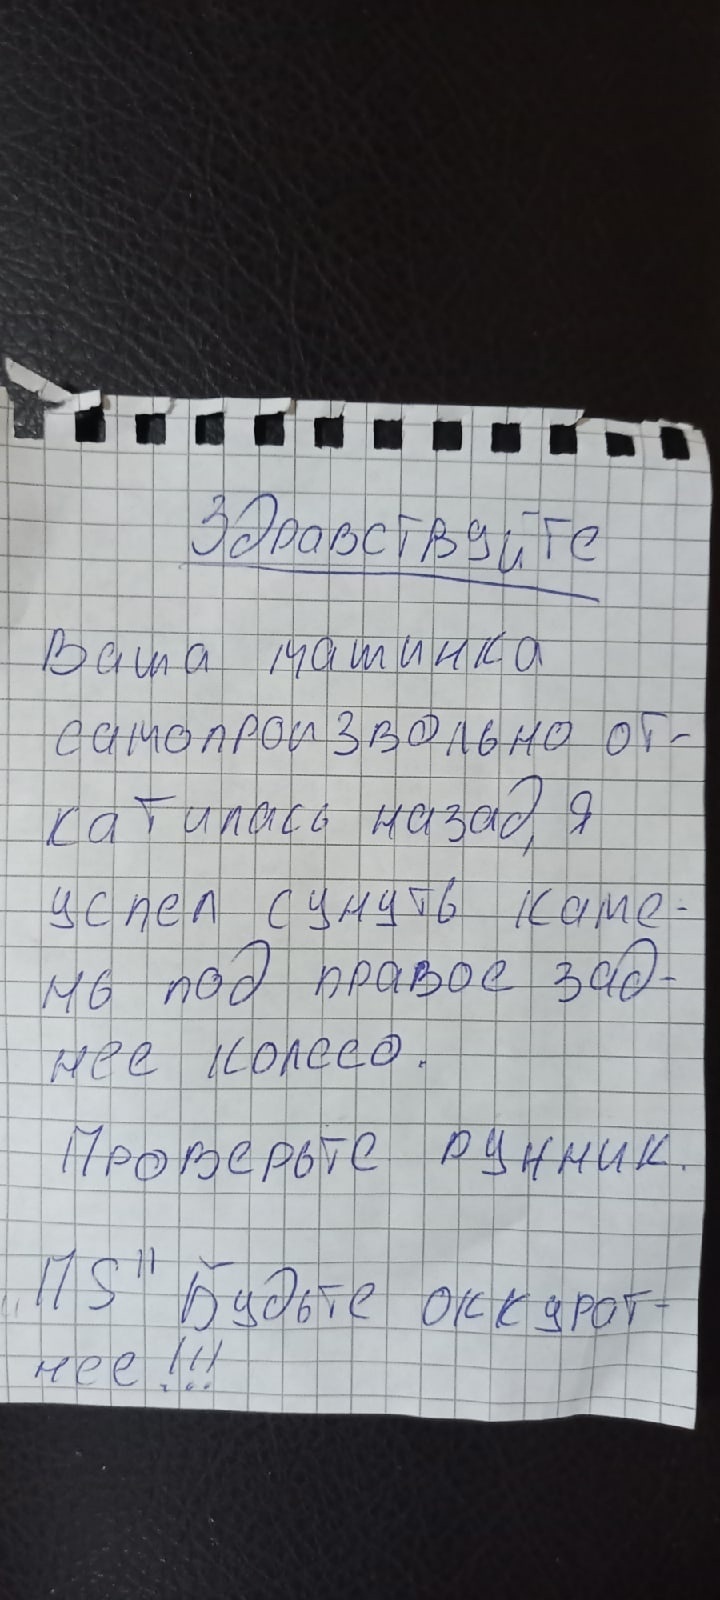 Здравствуйте
Ваша машинка
самопроизвольно от-
катилась назад, я
успел сунуть каме-
нь под правое зад-
нее колесо.
Проверьте рунник.
"ПS" Будьте оккурот-
нее!!!